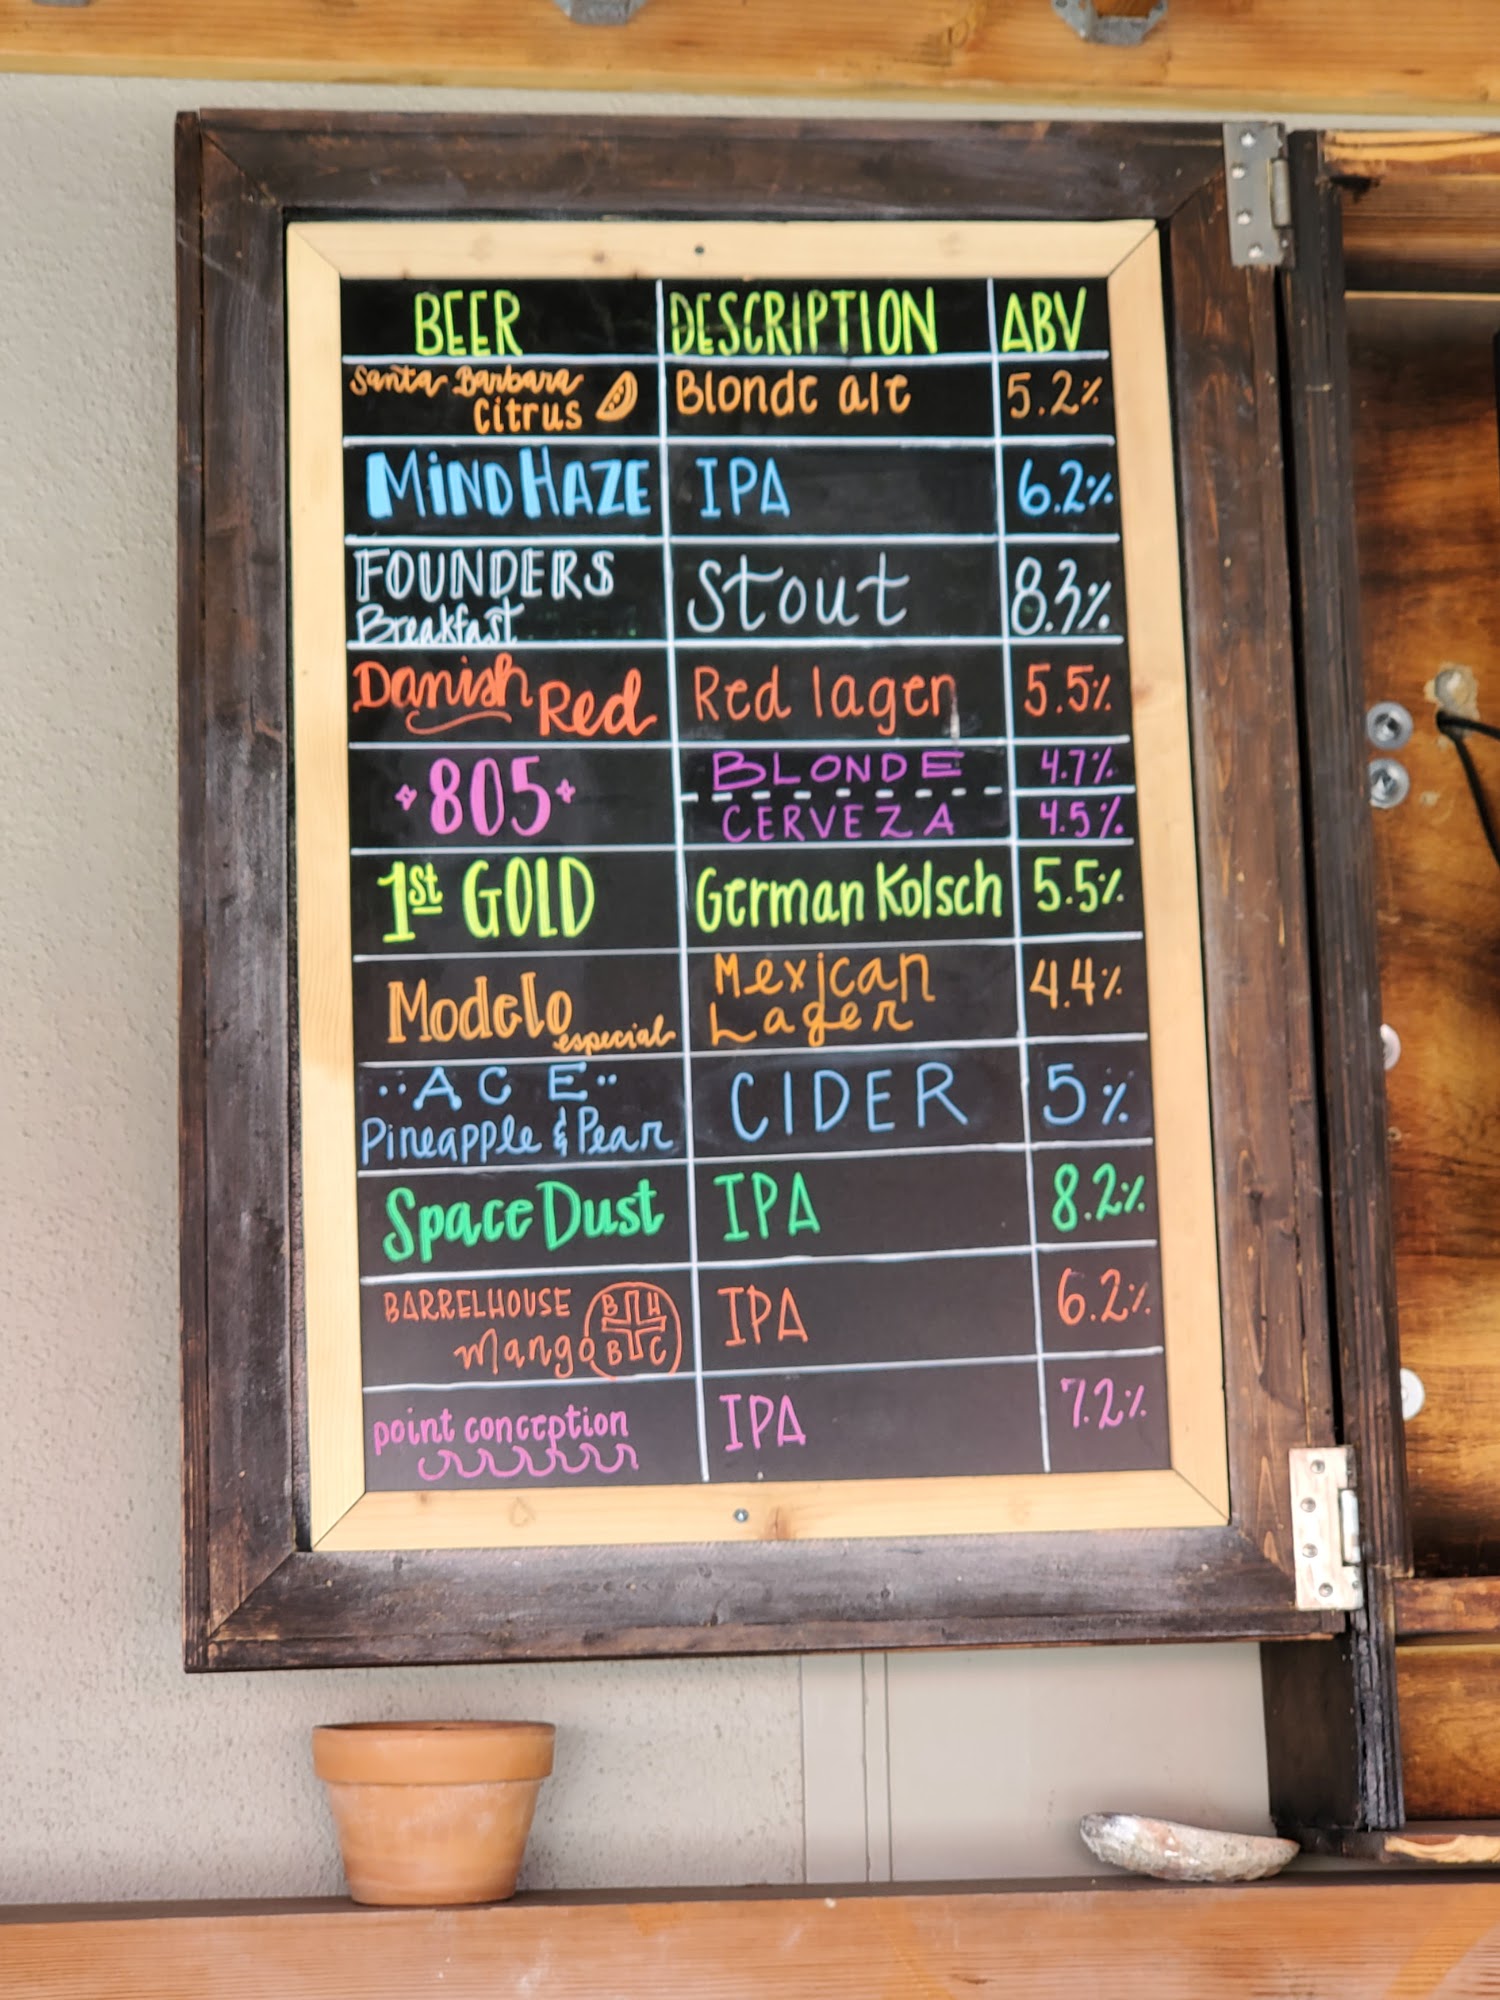 BEER DESCRIPTION ABV
Santa Barbara
Citrus Blonde ale 5.2%
MIND HAZE IPA 6.2%
FOUNDERS
Breakfast Stout 8.3%
Danish Red Red lager 5.5%
805 BLONDE 4.7%
CERVEZA 4.5%
1st GOLD German Kolsch 5.5%
Modelo
especial Mexican
Lager 4.4%
ACE
Pineapple & Pear CIDER 5%
Space Dust IPA 8.2%
BARRELHOUSE
Mango IPA 6.2%
B H
B C
point conception IPA 7.2%